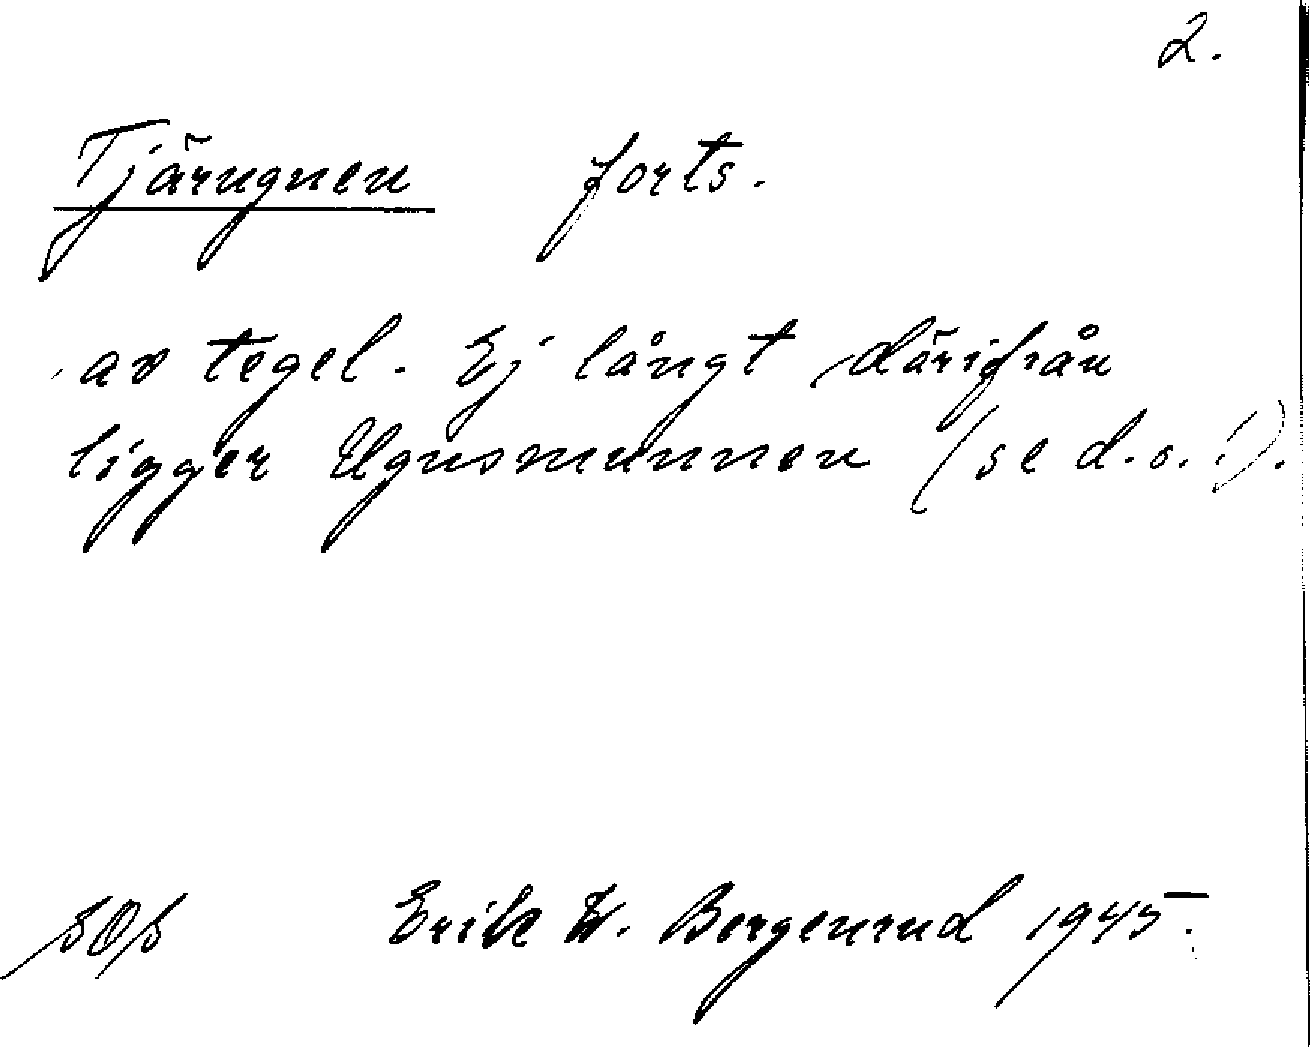 2.
Tjärugnen forts.
av tegel. Ej långt därifrån
ligger Ugnsmunnen (se d.o.!).
Erik W. Bergenrud 1945.